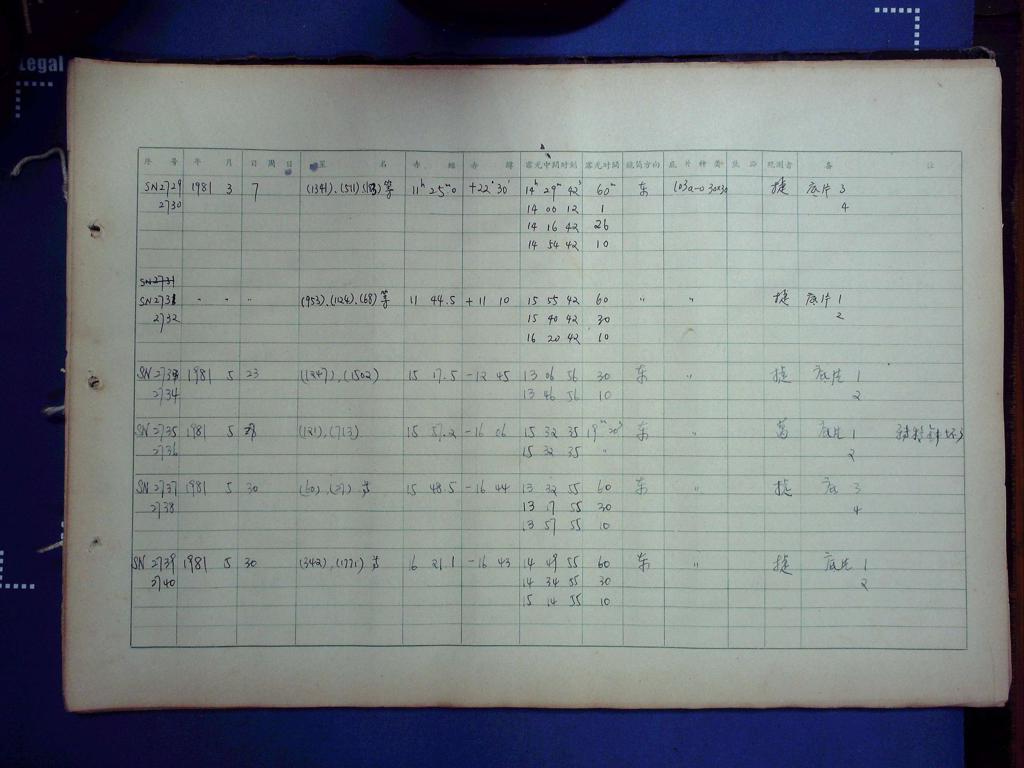 Legal
序 号 年 月 日 周 日 星 名 赤 经 赤 纬 露光中间时刻 露光时间 镜筒方向 底 片 种 类 观测者 备 注
SN2729 1981 3 7 (1341), (511) 等 11h 25m0 +22° 30' 14h 29m 42s 60m 东 103a-o 30x30 捷 底片 3
2730 14 00 12 1 4
14 16 42 26
14 54 42 10
SN2731
SN2731 " " " (953), (124), (68) 等 11 44.5 +11 10 15 55 42 60 " " 捷 底片 1
2732 15 40 42 30 2
16 20 42 10
SN2733 1981 5 23 (1247), (1502) 15 17.5 -12 45 13 06 56 30 东 " 捷 底片 1
2734 13 46 56 10 2
SN2735 1981 5 (121), (713) 15 57.2 -16 06 15 32 35 19m 20s 东 " 底片 1
2736 15 32 35 " 2
SN2737 1981 5 30 (60), (27) 等 15 48.5 -16 44 13 32 55 60 东 " 捷 底 3
2738 13 17 55 30 4
13 57 55 10
SN2739 1981 5 30 (342), (1771) 等 16 21.1 -16 43 14 49 55 60 东 " 捷 底片 1
2740 14 34 55 30 2
15 14 55 10